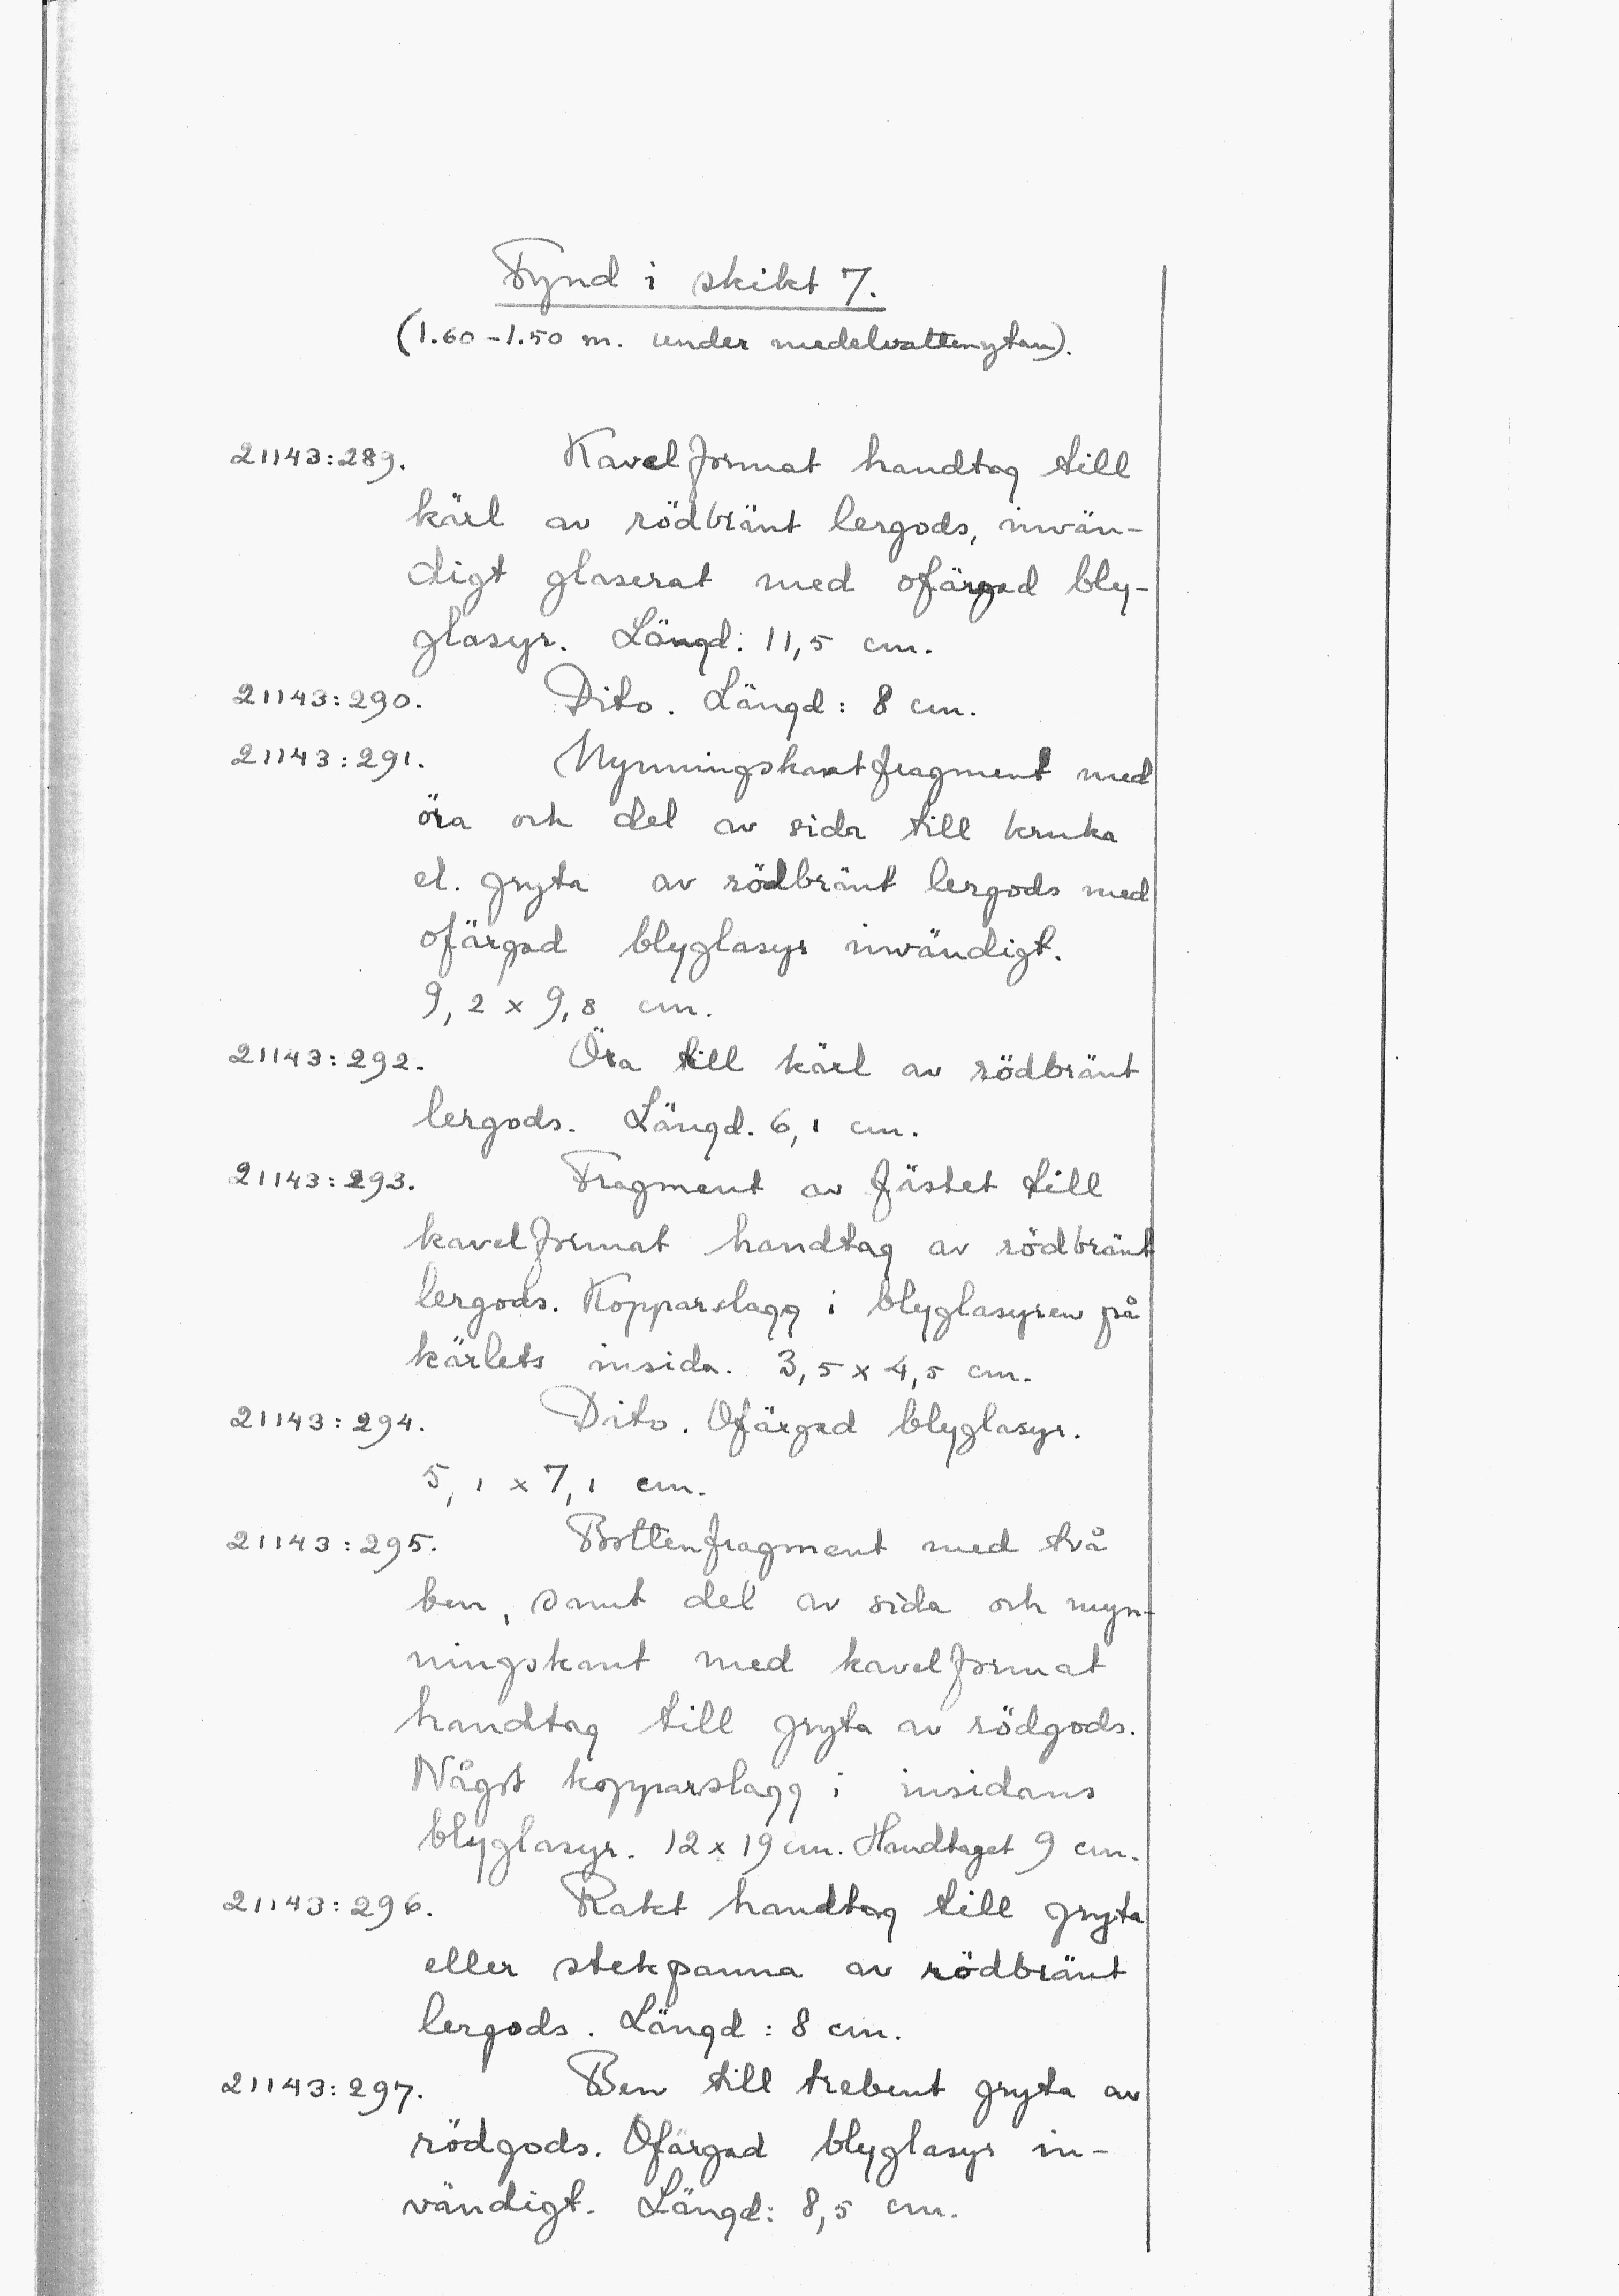 Fynd i skikt 7.
(1.60-1.50 m. under medelvattenytan).
21143:289. Kavelformat handtag till
kärl av rödbränt lergods, invän-
digt glaserat med ofärgad bly-
glasyr. Längd: 11,5 cm.
21143:290. Dito. Längd: 8 cm.
21143:291. Mynningskantfragment med
öra och del av sida till kruka
el. gryta av rödbränt lergods med
ofärgad blyglasyr invändigt.
9,2 x 9,8 cm.
21143:292. Öra till kärl av rödbränt
lergods. Längd. 6,1 cm.
21143:293. Fragment av fästet till
kavelformat handtag av rödbränt
lergods. Kopparslagg i blyglasyren på
kärlets insida. 3,5 x 4,5 cm.
21143:294. Dito. Ofärgad blyglasyr.
5,1 x 7,1 cm.
21143:295. Bottenfragment med två
ben, samt del av sida och myn-
ningskant med kavelformat
handtag till gryta av rödgods.
Något kopparslagg i insidans
blyglasyr. 12 x 19 cm. Handtaget 9 cm.
21143:296. Rakt handtag till gryta
eller stekpanna av rödbränt
lergods. Längd: 8 cm.
21143:297. Ben till trebent gryta av
rödgods. Ofärgad blyglasyr in-
vändigt. Längd: 8,5 cm.